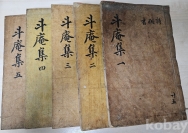 斗庵集 一
斗庵集 二
斗庵集 三
斗庵集 四
斗庵集 五
kobay